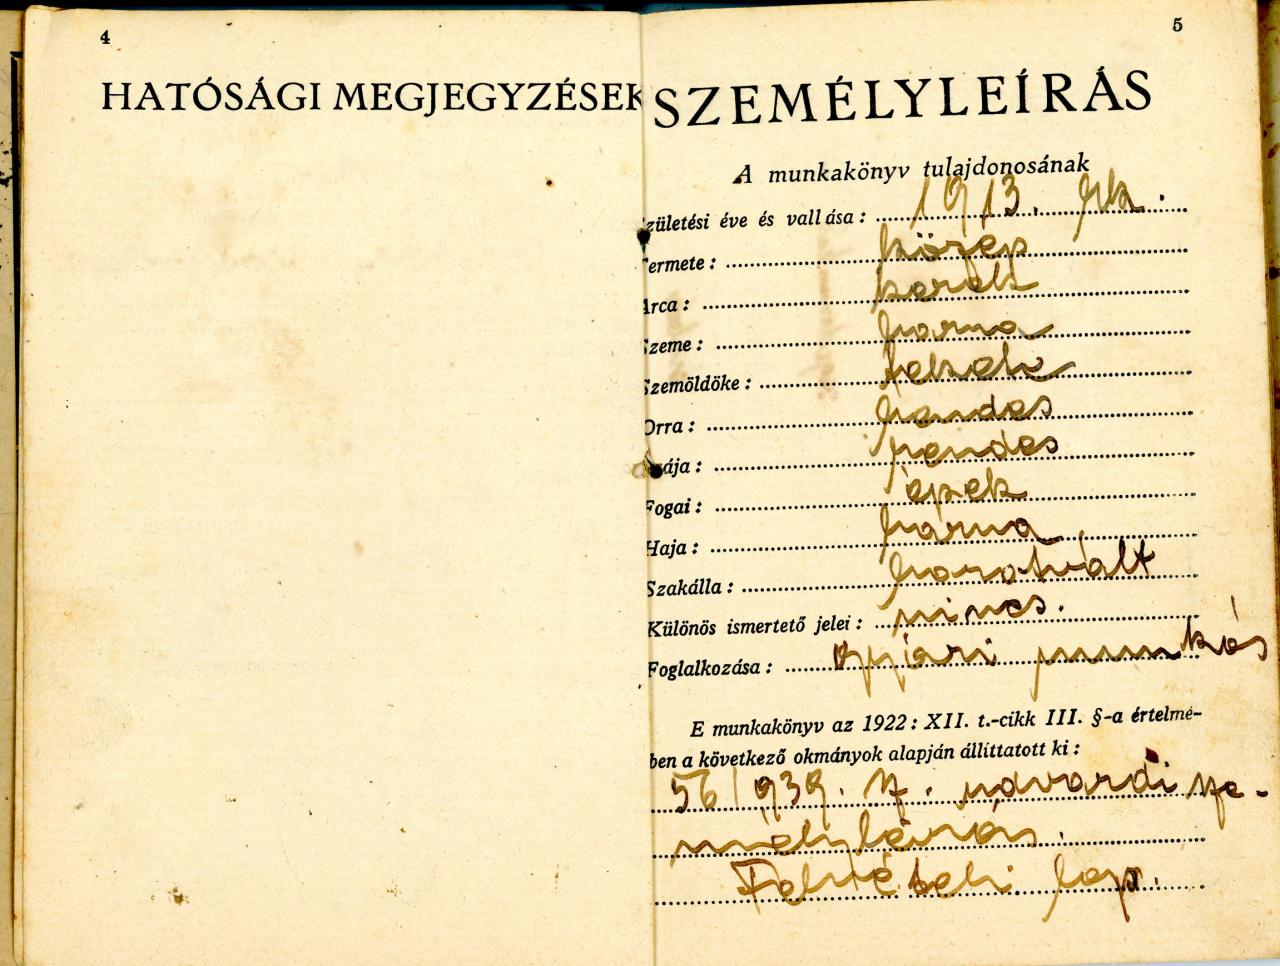 4
HATÓSÁGI MEGJEGYZÉSEK
5
SZEMÉLYLEÍRÁS
A munkakönyv tulajdonosának
zületési éve és vallása: 1913. rk.
ermete: közép
Arca: kerek
zeme: barna
Szemöldöke: fekete
Orra: rendes
zája: rendes
Fogai: épek
Haja: barna
Szakálla: borotvált
Különös ismertető jelei: nincs.
Foglalkozása: gyári munkás
E munkakönyv az 1922: XII. t.-cikk III. §-a értelmé-
ben a következő okmányok alapján állíttatott ki:
56/939. sz. udvardi sze-
mélyleírás.
Felvételi lap.